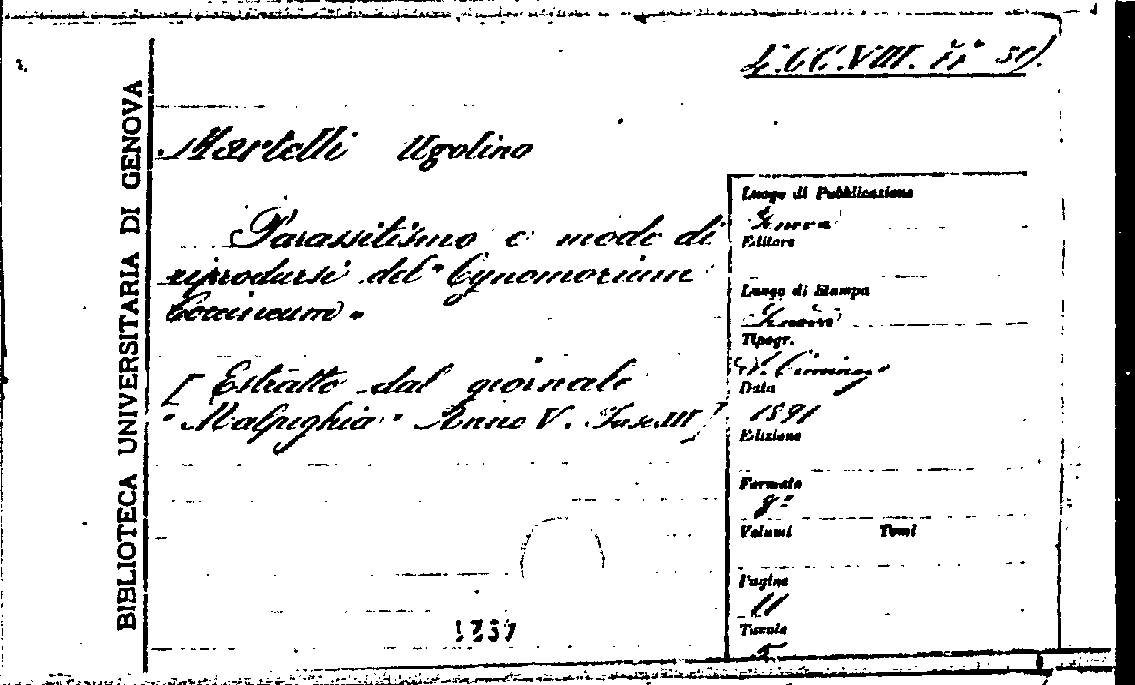 BIBLIOTECA UNIVERSITARIA DI GENOVA
Martelli Ugolino
Parassitismo e modo di
riprodursi del "Cynomorium
Coccineum"
[Estratto dal giornale
"Malpighia" Anno V. Fasc. III]
Luogo di Pubblicazione
Genova
Editore
Luogo di Stampa
Genova
Tipogr.
Data
1891
Edizione
Formato
8º
Volumi Tomi
Pagine
11
Tavole
1337